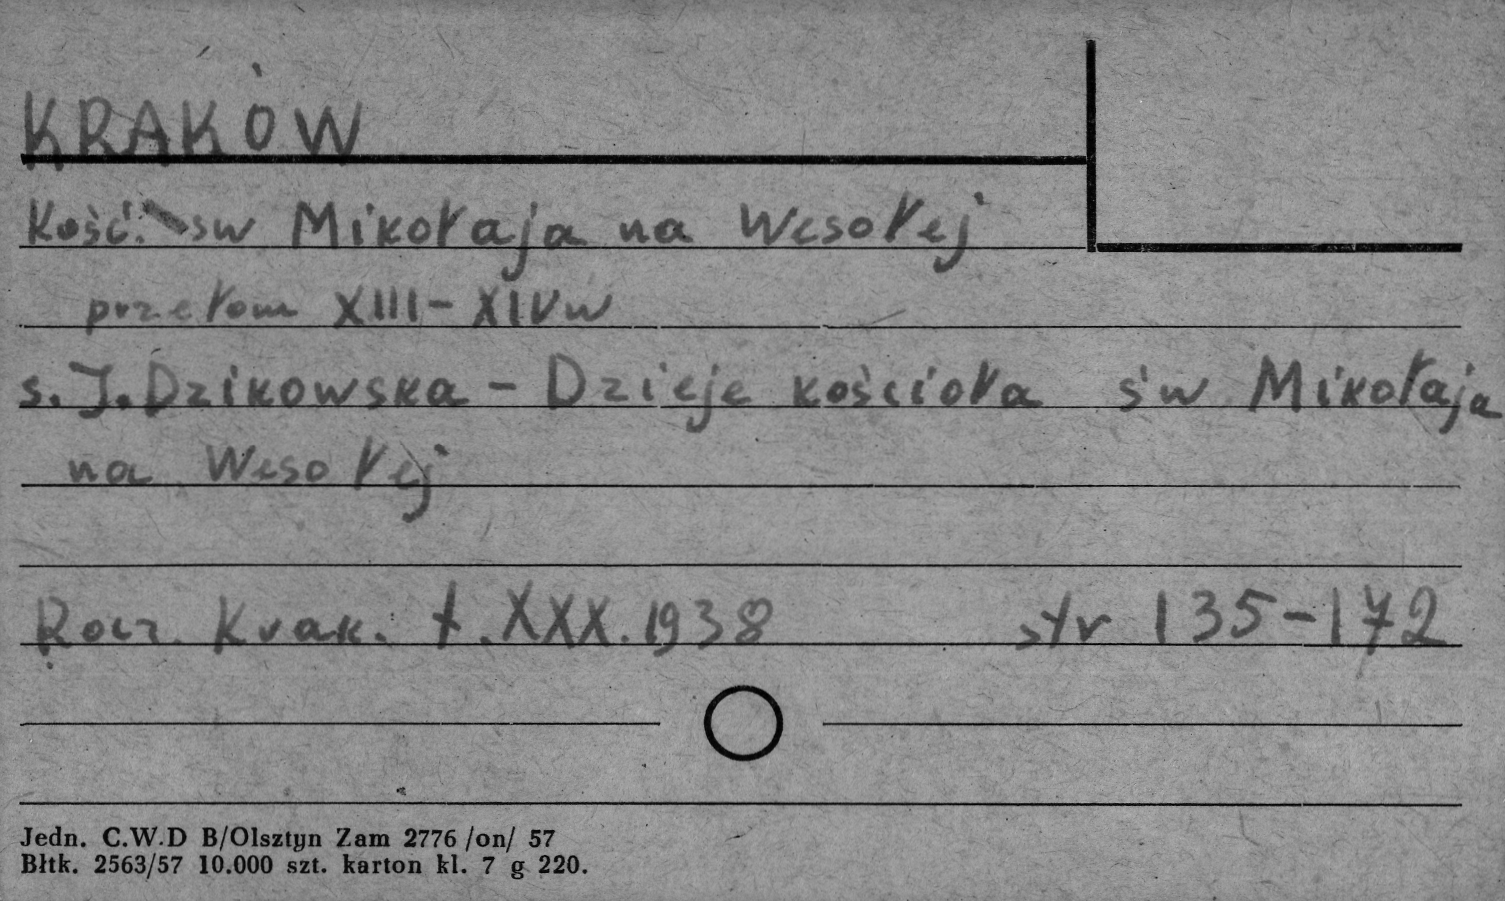 KRAKÓW
Kość. św Mikołaja na Wesołej
przełom XIII-XIVw
s. J. Dzikowska - Dzieje kościoła św Mikołaja
na Wesołej
Rocz. Krak. t. XXX. 1938 str 135-172
Jedn. C.W.D B/Olsztyn Zam 2776 /on/ 57
Błtk. 2563/57 10.000 szt. karton kl. 7 g 220.